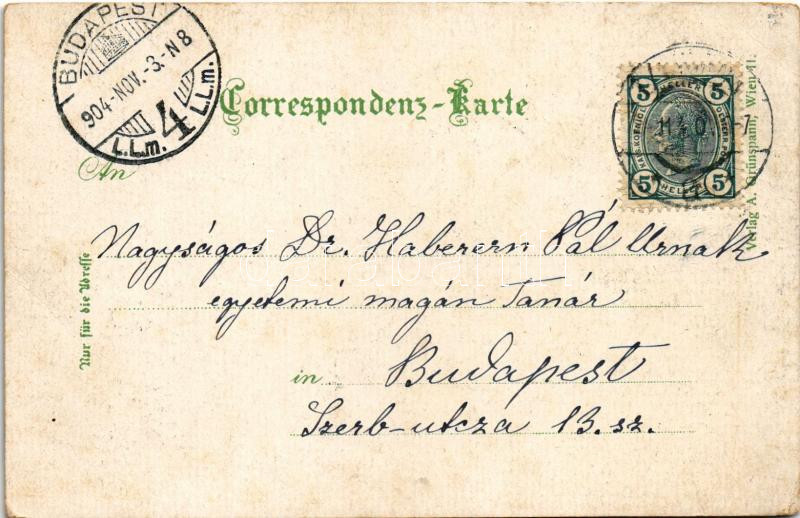 BUDAPEST
904-NOV.-3.-N8
4
L.L.m. L.L.m.
Correspondenz-Karte
5 HELLER 5
5 HELLER 5
An
Nagyságos Dr. Haberern Pál Urnak
egyetemi magán Tanár
in Budapest
Szerb-utcza 13. sz.
Nur für die Adresse
Verlag A. Grünspann, Wien II.